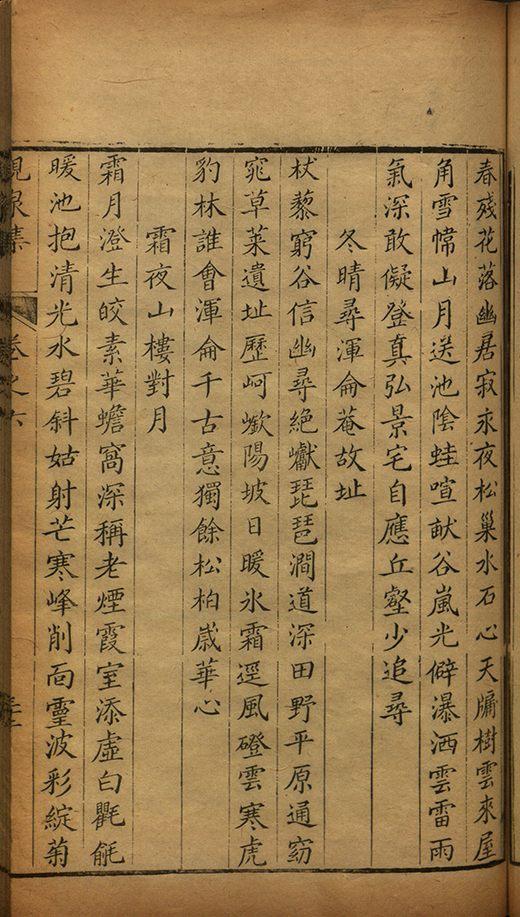 春殘花落幽居寂永夜松巢水石心天牖樹雲來屋
角雪幃山月送池陰蛙喧畎谷嵐光僻瀑洒雲雷雨
氣深敢儗登真弘景宅自應丘壑少追尋
冬晴尋渾侖菴故址
杖藜窮谷信幽尋絕巘琵琶澗道深田野平原通窈
窕草萊遺址歷岣嶁陽坡日暖氷霜逕風磴雲寒虎
豹林誰會渾侖千古意獨餘松柏歲華心
霜夜山樓對月
霜月澄生皎素華蟾窩深稱老煙霞室添虛白氍毹
暖池抱清光水碧斜姑射芒寒峰削面靈波彩綻菊
峴泉集 卷之六